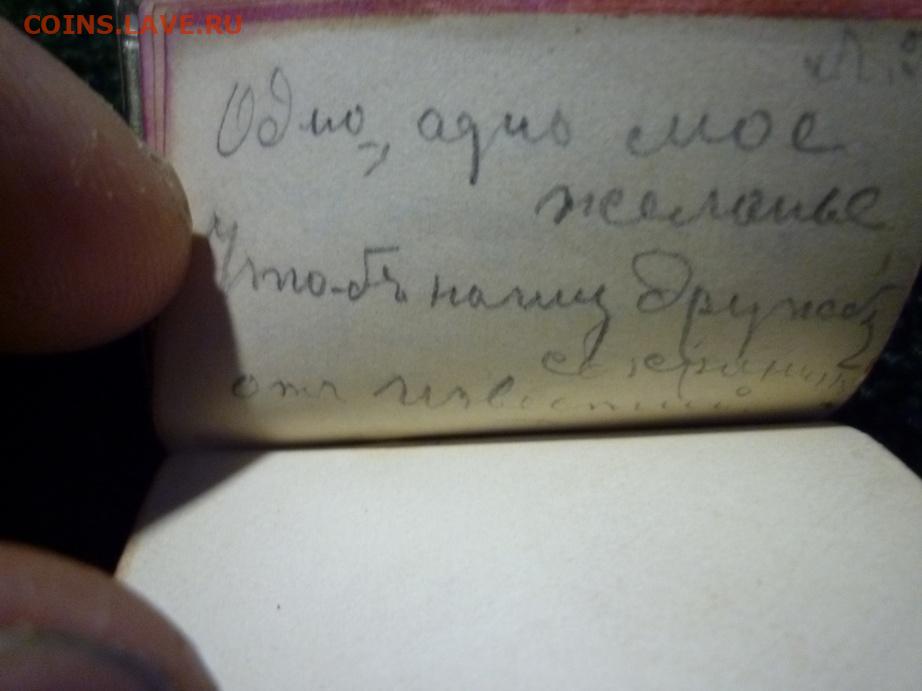 COINS.LAVE.RU
Одно, одно мое
желанье
Чтобъ нашу дружбу
сохранить
отъ